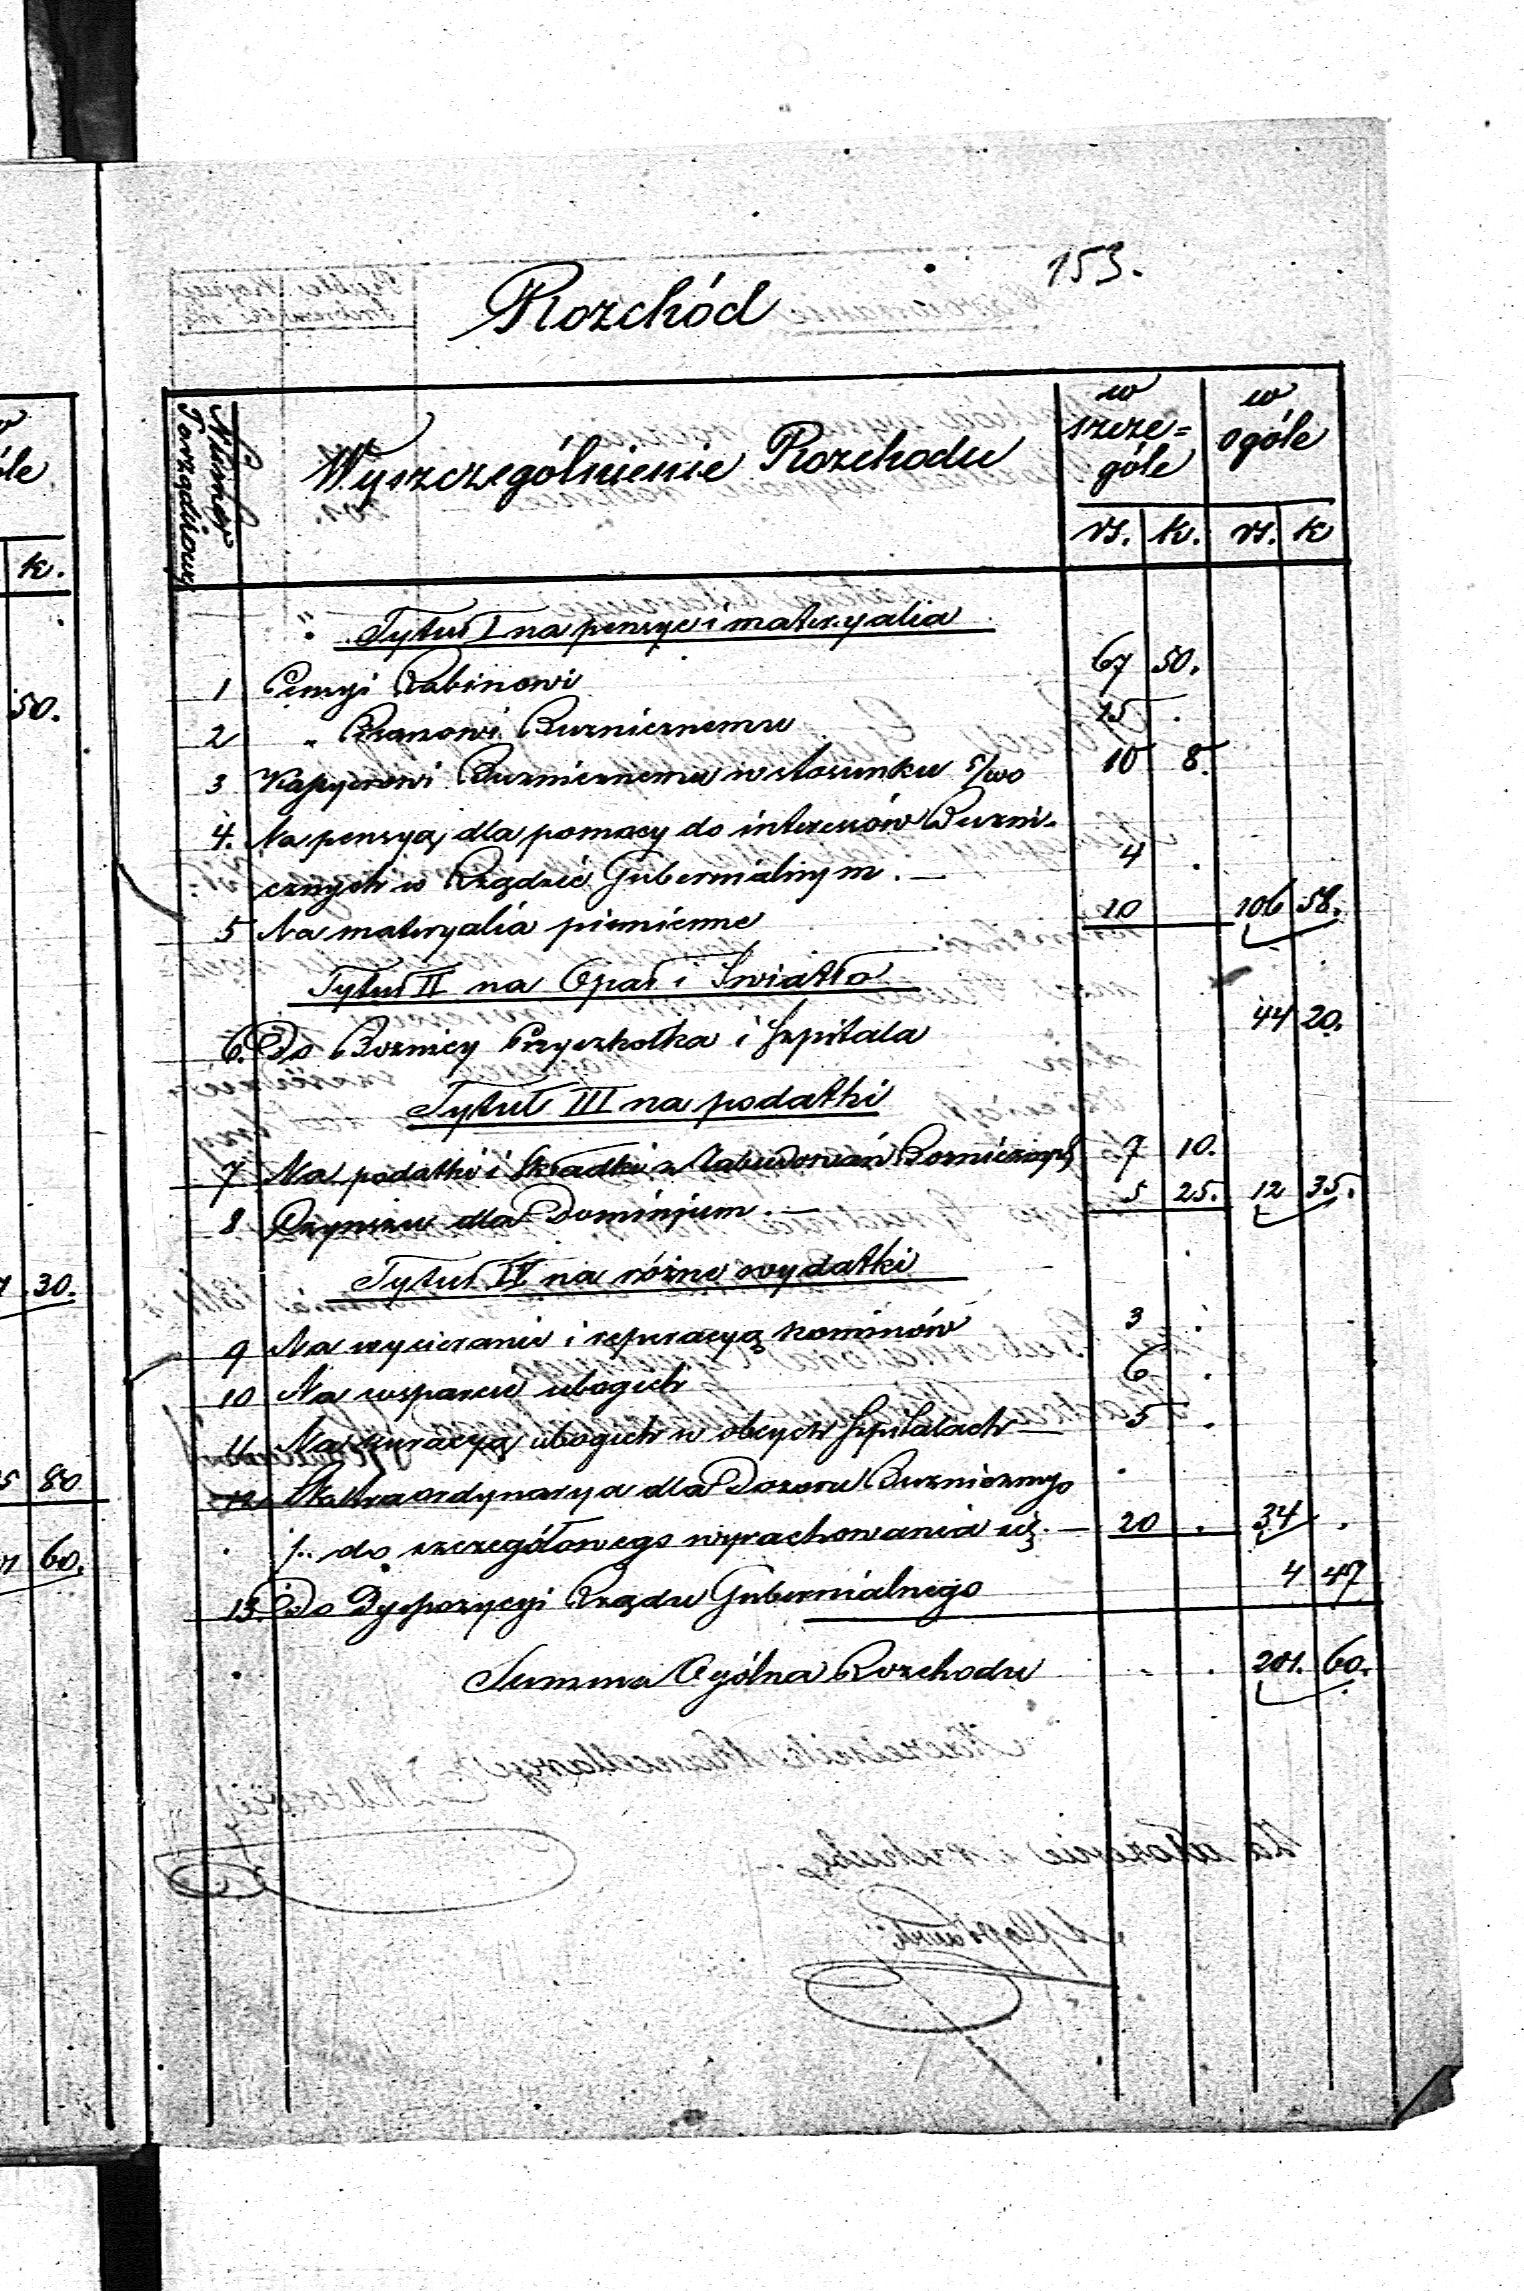 153.
Rozchód
Numer Porządkowy
Wyszczególnienie Rozchodu
w szcze=
góle
w
ogóle
rs. k. rs. k
Tytuł I na pensye i materyalia
1 Pensyi Rabinowi 67 50.
2 „ Bużnicznemu 15 .
3 Kasyerowi Bużnicznemu w stosunku 5/100 10 8.
4. Na pensyą dla pomocy do interesów Bużni-
cznych w Rządzie Gubernialnym. — 4 .
5 Na materyalia piśmienne 10 106 58.
Tytuł II na Opał i Światło
6. Do Bożnicy Przyszkołka i Szpitala 44 20.
Tytuł III na podatki
7 Na podatki i Składki z Zabudowań Bożnicznych 7 10.
8 Czynszu dla Dominium. — 5 25. 12 35.
Tytuł IV na różne wydatki
9 Na wycieranie i reperacyą kominów 3 .
10 Na wsparcie ubogich 6 .
11 Na kuracyą ubogich w obcych Szpitalach — 5 .
12 Extraordynarya dla Dozoru Bużnicznego
/. do szczegółowego wyrachowania się. — 20 . 34 .
13. Do Dyspozycyi Rządu Gubernialnego 4 47
Summa Ogólna Rozchodu 201. 60.
óle
k.
50.
30.
5 80
60.